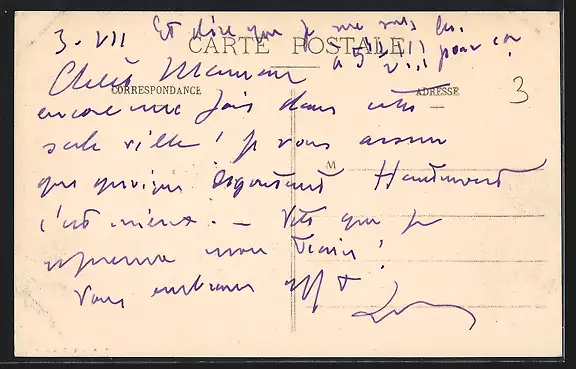 3. VII Et dire que je me suis
CARTE POSTALE
à 5 h pour ça
Chère Maman
CORRESPONDANCE
ADRESSE
3
encore une fois dans cette
sale ville ! Je vous assure
M
que quoique dégoûtant
c'est mieux. — Vite que je
reprenne mon train !
Vous embrasse aff +